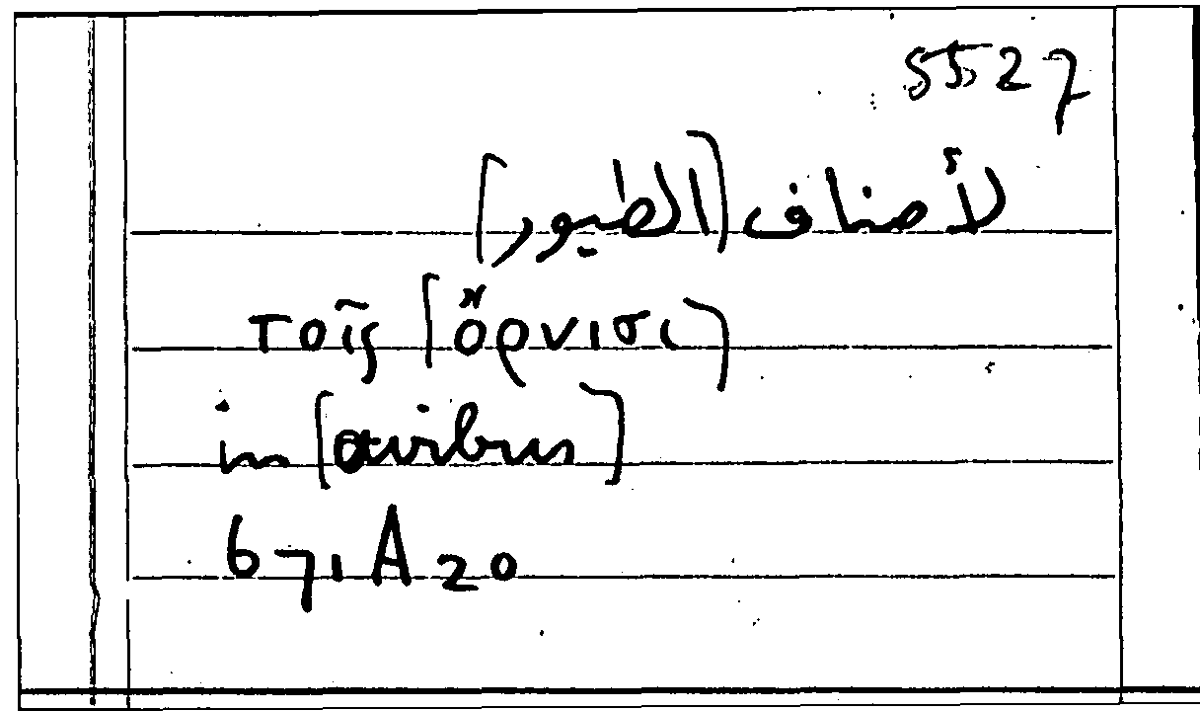 5527
لأصناف (الطيور]
τοῖς [ὄρνισι)
in [avibus]
671A20